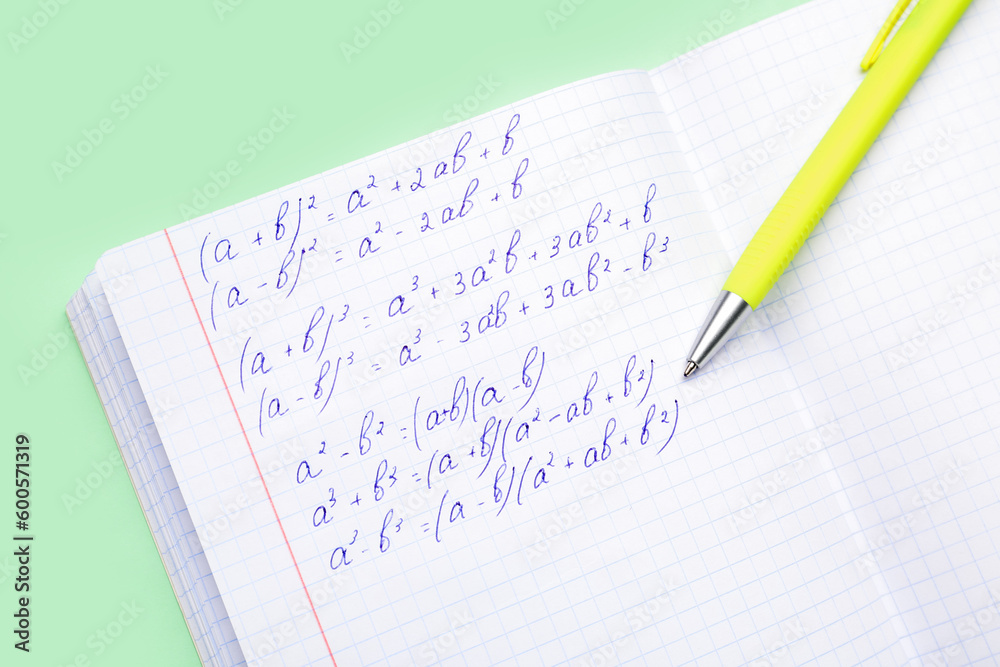 (a + b)² = a² + 2ab + b
(a - b)² = a² - 2ab + b
(a + b)³ = a³ + 3a²b + 3ab² + b
(a - b)³ = a³ - 3a²b + 3ab² - b³
a² - b² = (a+b)(a - b)
a³ + b³ = (a + b)(a² - ab + b²)
a³ - b³ = (a - b)(a² + ab + b²)
Adobe Stock | #600571319